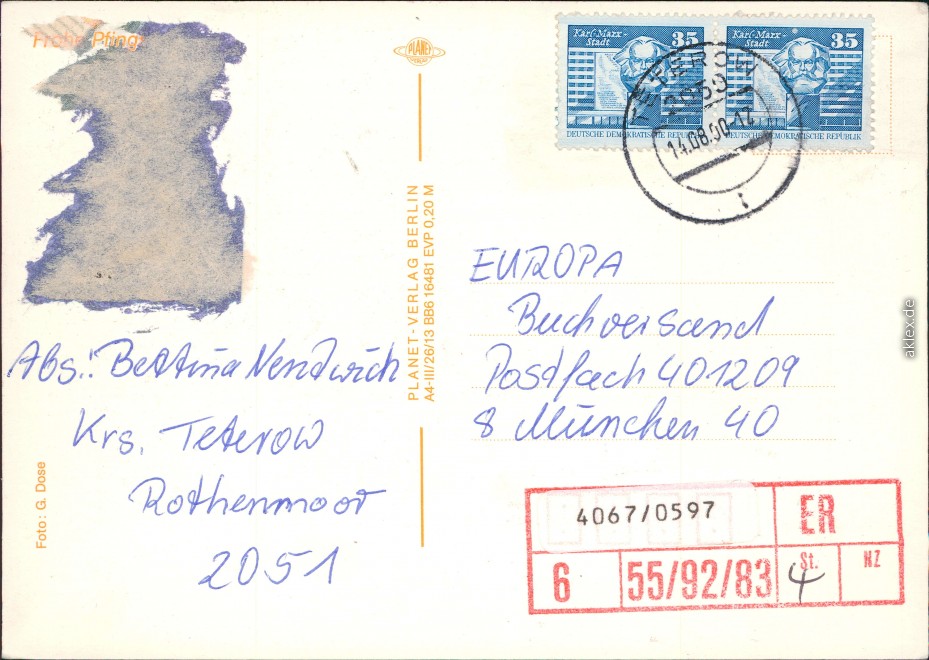 Frohe Pfing
PLANET
VERLAG
Karl-Marx-
Stadt
35
DEUTSCHE DEMOKRATISCHE REPUBLIK
Karl-Marx-
Stadt
35
DEUTSCHE DEMOKRATISCHE REPUBLIK
TETEROW
2050
14.08.90-12
PLANET-VERLAG BERLIN
A4-III/26/13 BB6 16481 EVP 0,20 M
EUROPA
Buchversand
Postfach 401209
8 München 40
Abs.: Bettina
Krs. Teterow
Rothenmoor
2051
Foto: G. Dose
4067/0597
ER
6
55/92/83
St.
4
NZ
aklex.de